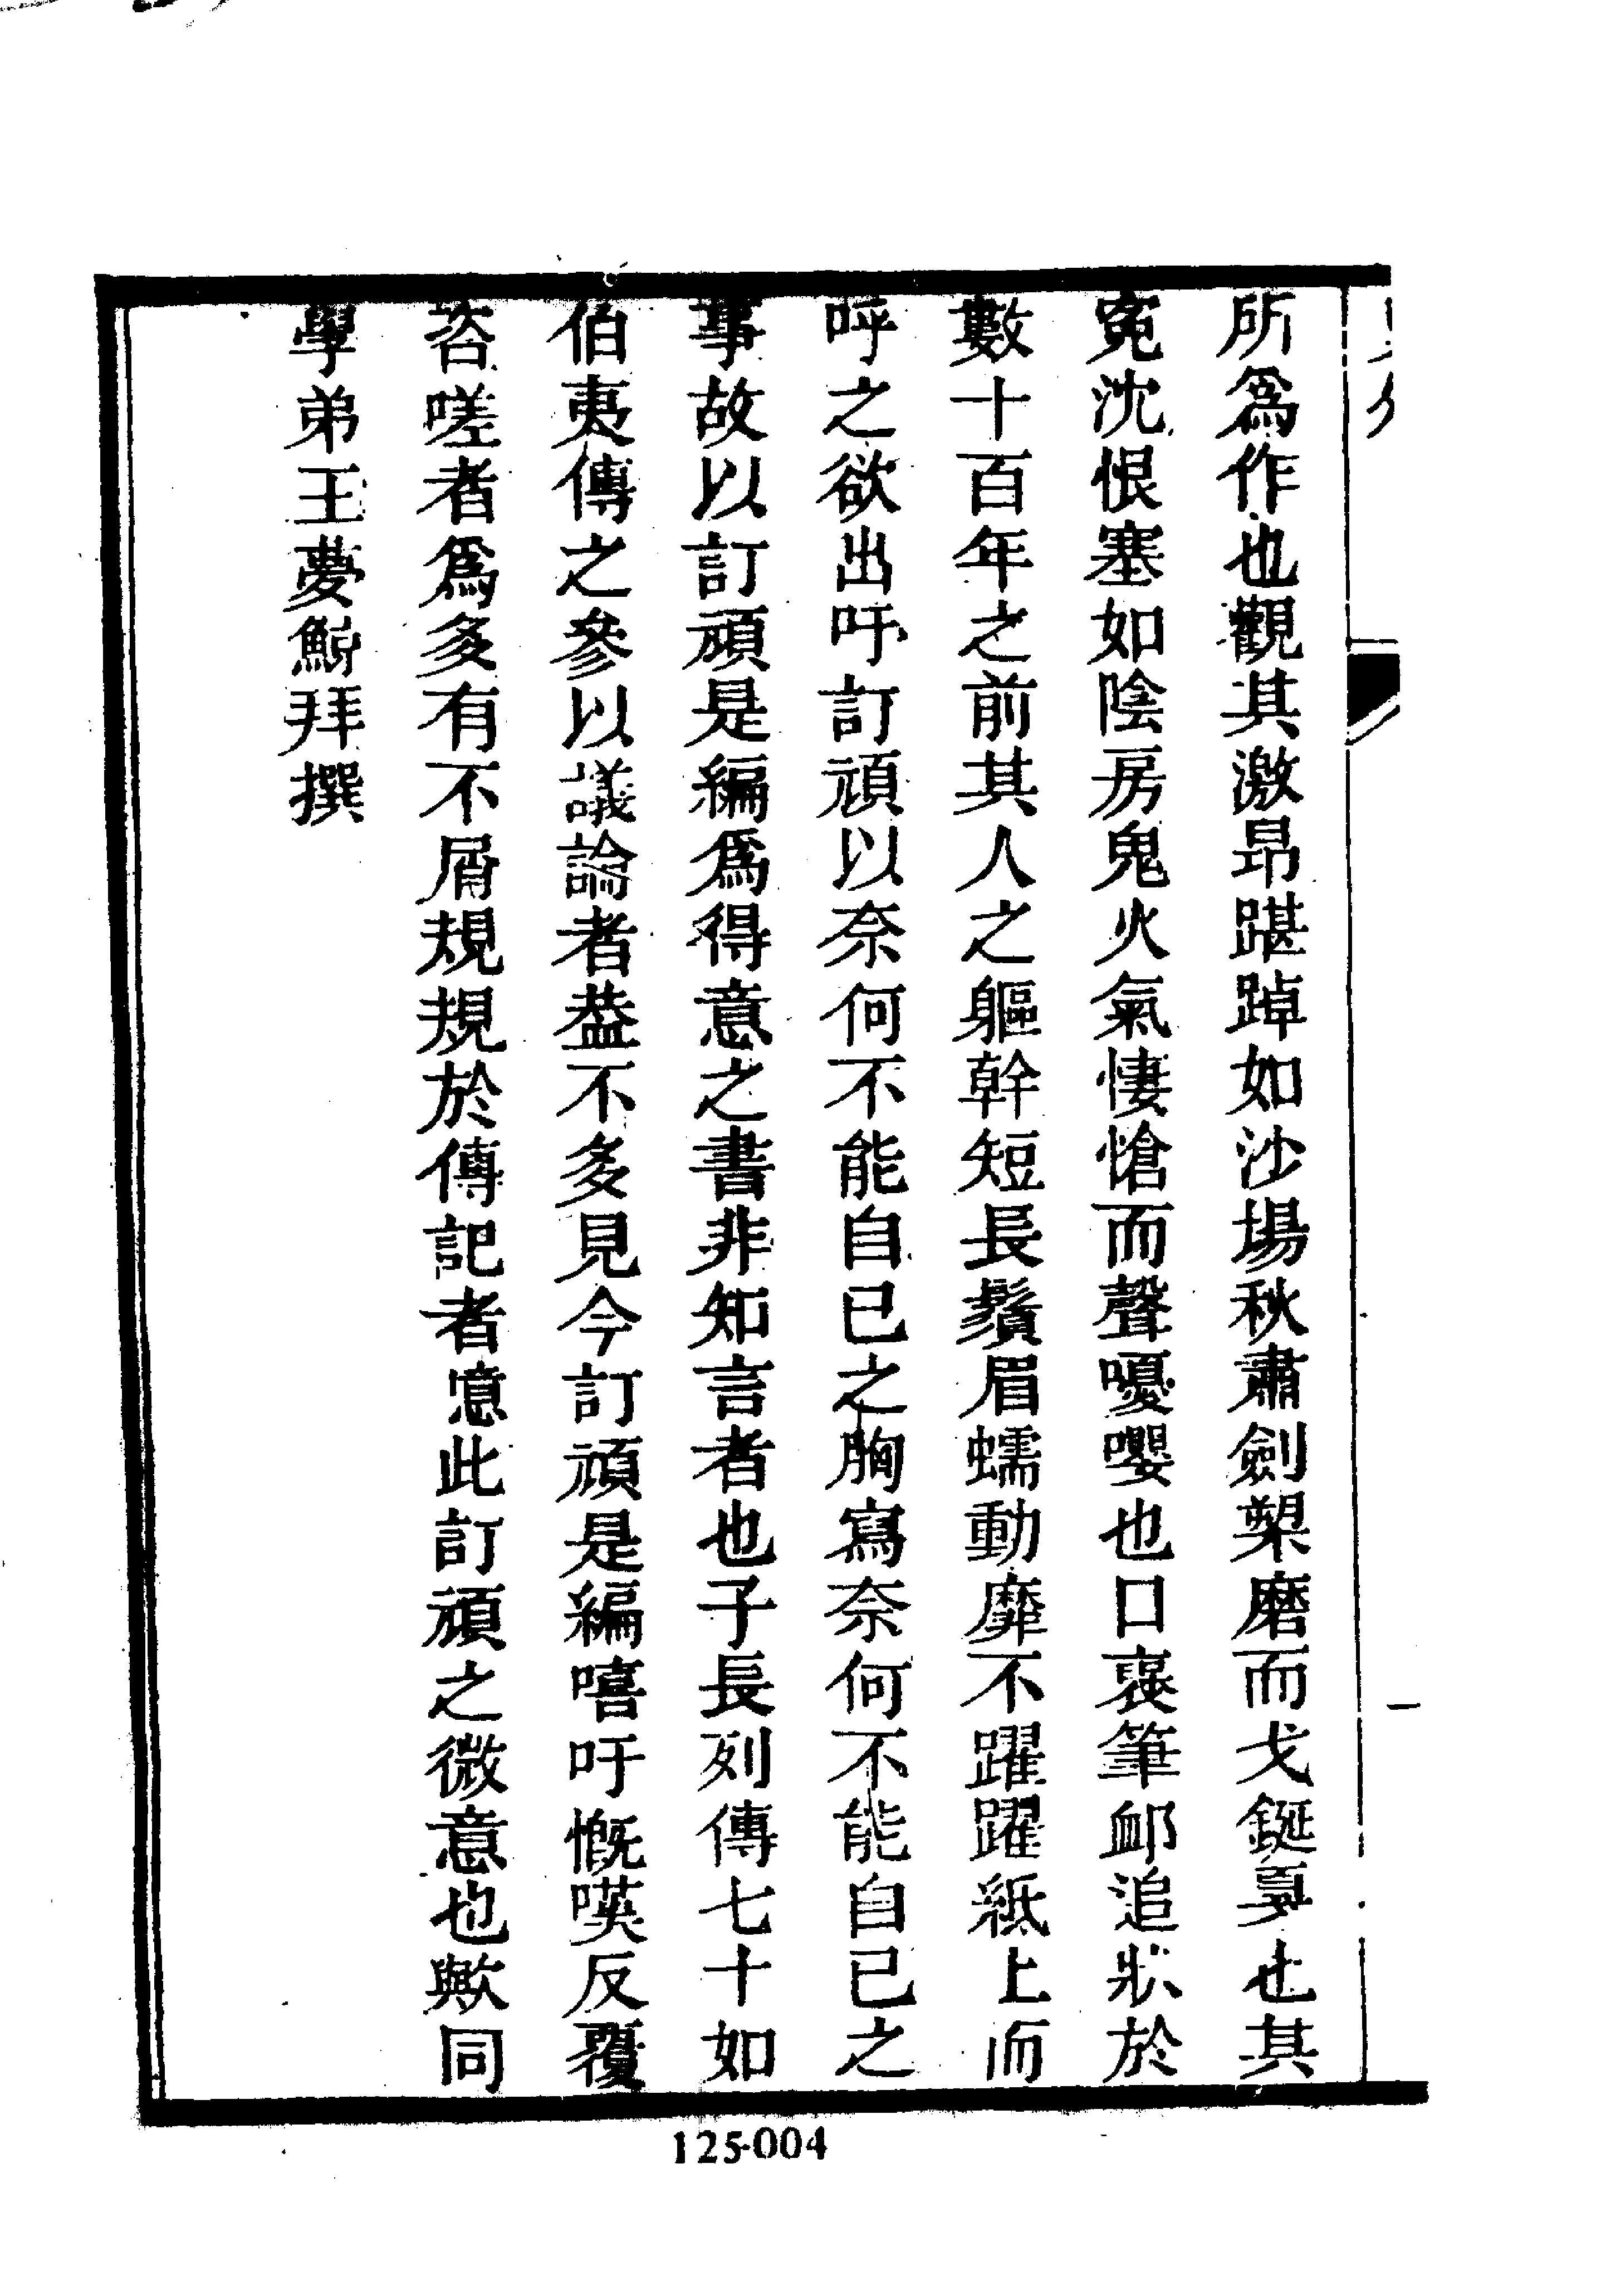 所爲作也觀其激昂踸踔如沙場秋肅劍槊磨而戈鋋戛也其
冤沈恨塞如陰房鬼火氣悽愴而聲嚘嚶也口哀筆卹追狀於
數十百年之前其人之軀幹短長鬚眉蠕動靡不躍躍紙上而
呼之欲出吁訂頑以奈何不能自已之胸寫奈何不能自已之
事故以訂頑是編爲得意之書非知言者也子長列傳七十如
伯夷傳之參以議論者葢不多見今訂頑是編嘻吁慨嘆反覆
咨嗟者爲多有不屑規規於傳記者意此訂頑之微意也歟同
學弟王夢鯨拜撰
125-004